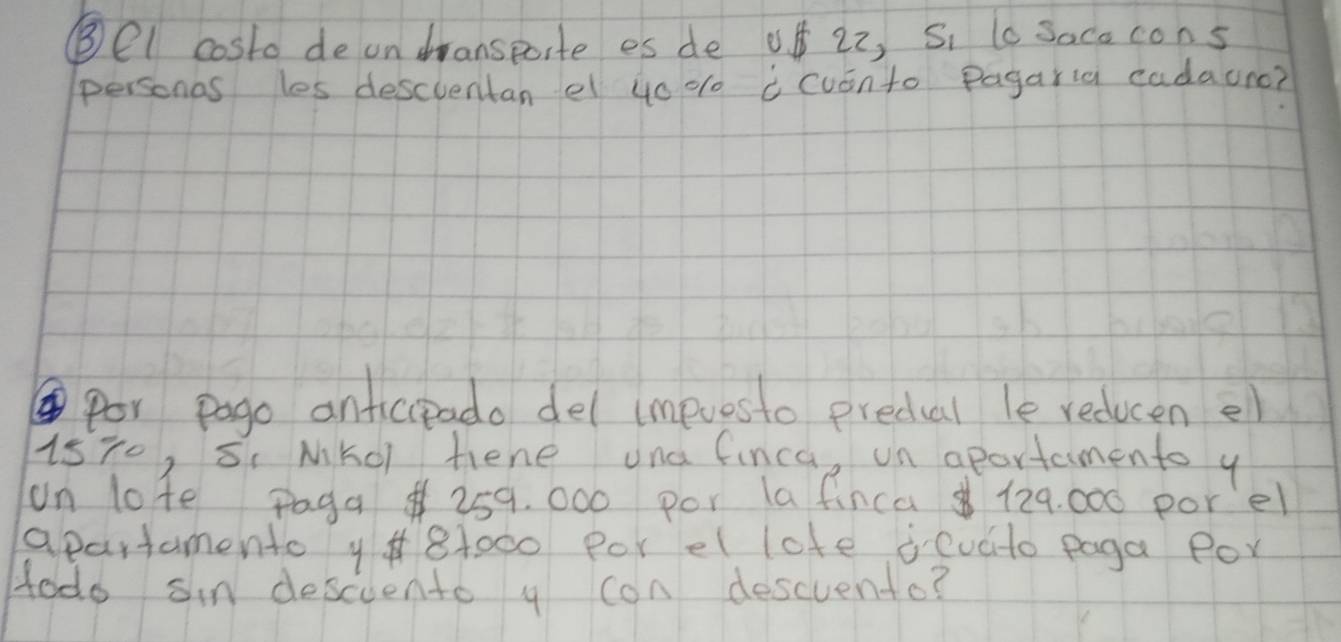 ③ El costo de un transporte es de U$ 22, Si lo saca con 5
personas les descuentan el 40% ¿ cuánto pagaria cada uno?
④ Por pago anticipado del impuesto predial le reducen el
15%, Si Nikol tiene una finca, un apartamento y
un lote paga $ 259.000 por la finca $ 129.000 por el
apartamento y $ 87000 por el lote ¿ cuato paga por
todo sin descuento y con descuento?